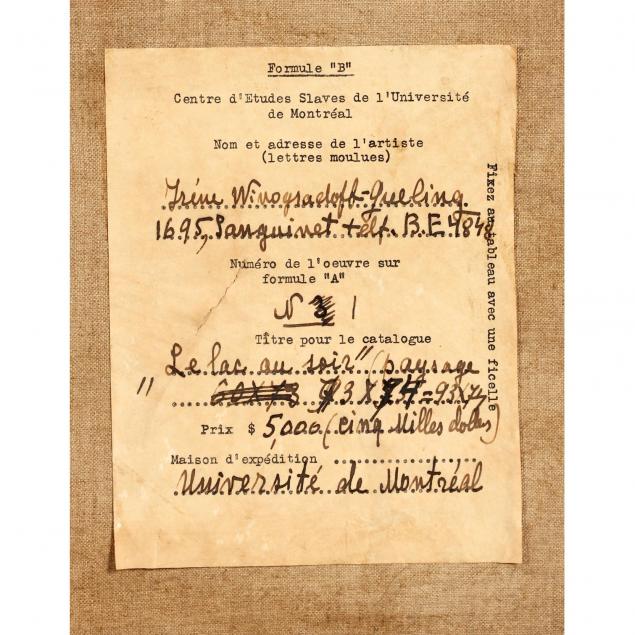 Formule "B"
Centre d'Etudes Slaves de l'Université
de Montréal
Nom et adresse de l'artiste
(lettres moulues)
Iréne Winogradoff-Queling
1695, Sanguinet télf. B.E. 9848
Numéro de l'oeuvre sur
formule "A"
N 1
Tître pour le catalogue
"Le lac au soir" (paysage
93 X 74 =
Prix $ 5,000 (Cinq Milles dollars)
Maison d'expédition
Université de Montréal
Fixez au tableau avec une ficelle